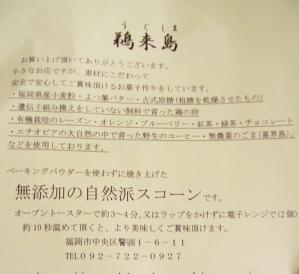 うぐしま
鵜来島
お買い上げ頂きてありがとうございます。
小さなお店ですが、素材にこだわって
安全で安心してご賞味頂けるお菓子作りをしています。
・福岡県産小麦粉・よつ葉バター・古式原糖(粗糖を乾燥させたもの)
・遺伝子組み換えをしていない飼料で育った鶏の卵
・有機栽培のレーズン・オレンジ・ブルーベリー・紅茶・緑茶・チョコレート
・エチオピアの大自然の中で育った野生のコーヒー・無農薬のごま(喜界島)
などを使用しております。
ベーキングパウダーを使わずに焼き上げた
無添加の自然派スコーンです。
オーブントースターで約3~4分、又はラップをかけずに電子レンジで(2個)
約10秒温めて頂くと、より美味しくご賞味頂けます。
福岡市中央区警固1-6-11
TEL092-722-0927